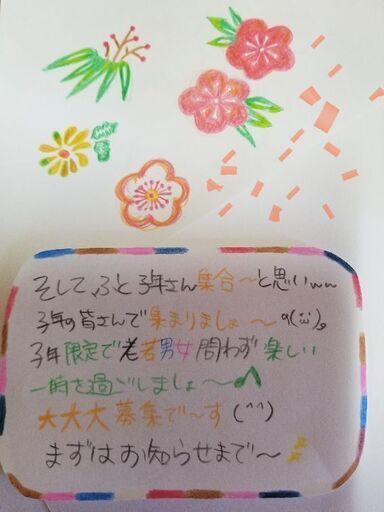 そして、ふと子年さん集合～と思いww
子年の皆さんで集まりましょ～ q(¨)。
子年限定で老若男女問わず楽しい
一時を過ごしましょ～♪
大大大募集で～す(^^)
まずはお知らせまで～